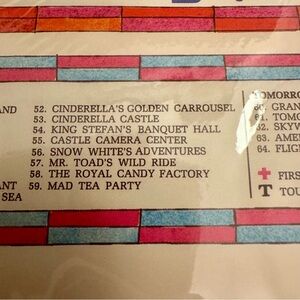 AND
ANT
SEA
52. CINDERELLA'S GOLDEN CARROUSEL
53. CINDERELLA CASTLE
54. KING STEFAN'S BANQUET HALL
55. CASTLE CAMERA CENTER
56. SNOW WHITE'S ADVENTURES
57. MR. TOAD'S WILD RIDE
58. THE ROYAL CANDY FACTORY
59. MAD TEA PARTY
TOMORRO
60. GRAN
61. TOMO
62. SKYW
63. AME
64. FLIGH
FIRS
T TOU